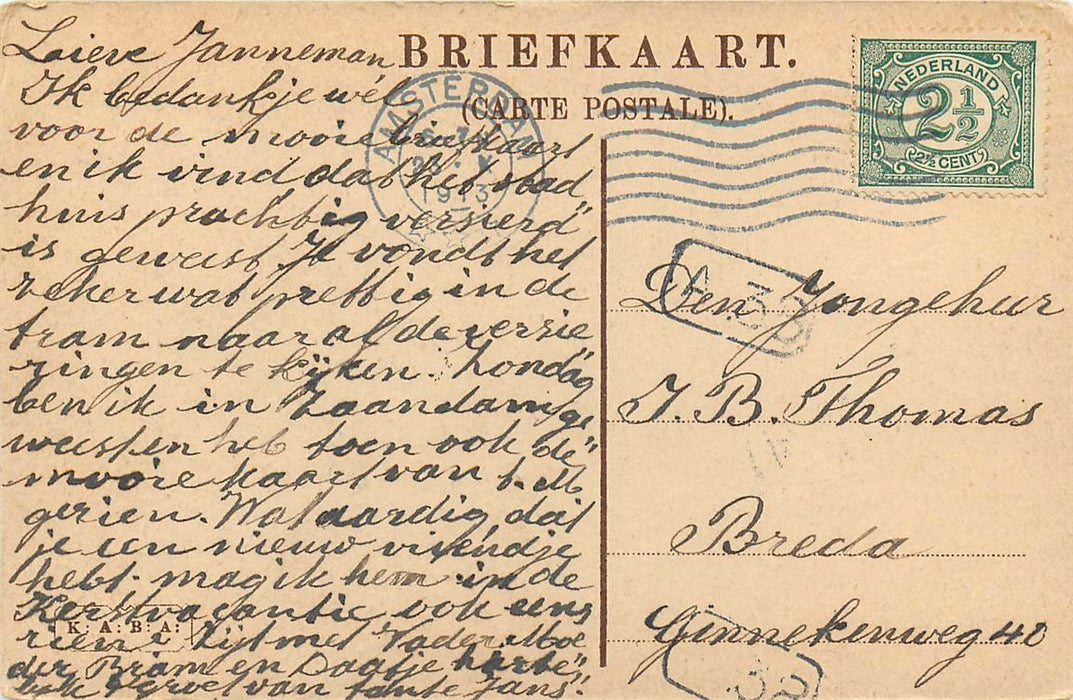 Lieve Janneman
Ik bedank je wel
voor de mooie briefkaart
en ik vind dat het stad„
huis prachtig versierd
is geweest Je vondt het
zeker wat prettig in de
tram naar al de versie„
ringen te kijken. Zondag
ben ik in Zaandam ge„
weest en heb toen ook de
mooie kaart van t. M
gezien. Wat aardig dat
je een nieuw vriendje
hebt. mag ik hem in de
Kerstvacantie ook eens
zien? Zijt met Vader Moe„
der Bram en Daatje harte„
lijk gegroet van tante Jans.
K. A. B. A.
BRIEFKAART.
(CARTE POSTALE).
AMSTERDAM
1913
NEDERLAND
2 1/2
2½ CENT
A 35
Den Jongeheer
J. B. Thomas
Breda
Ginnekenweg 40